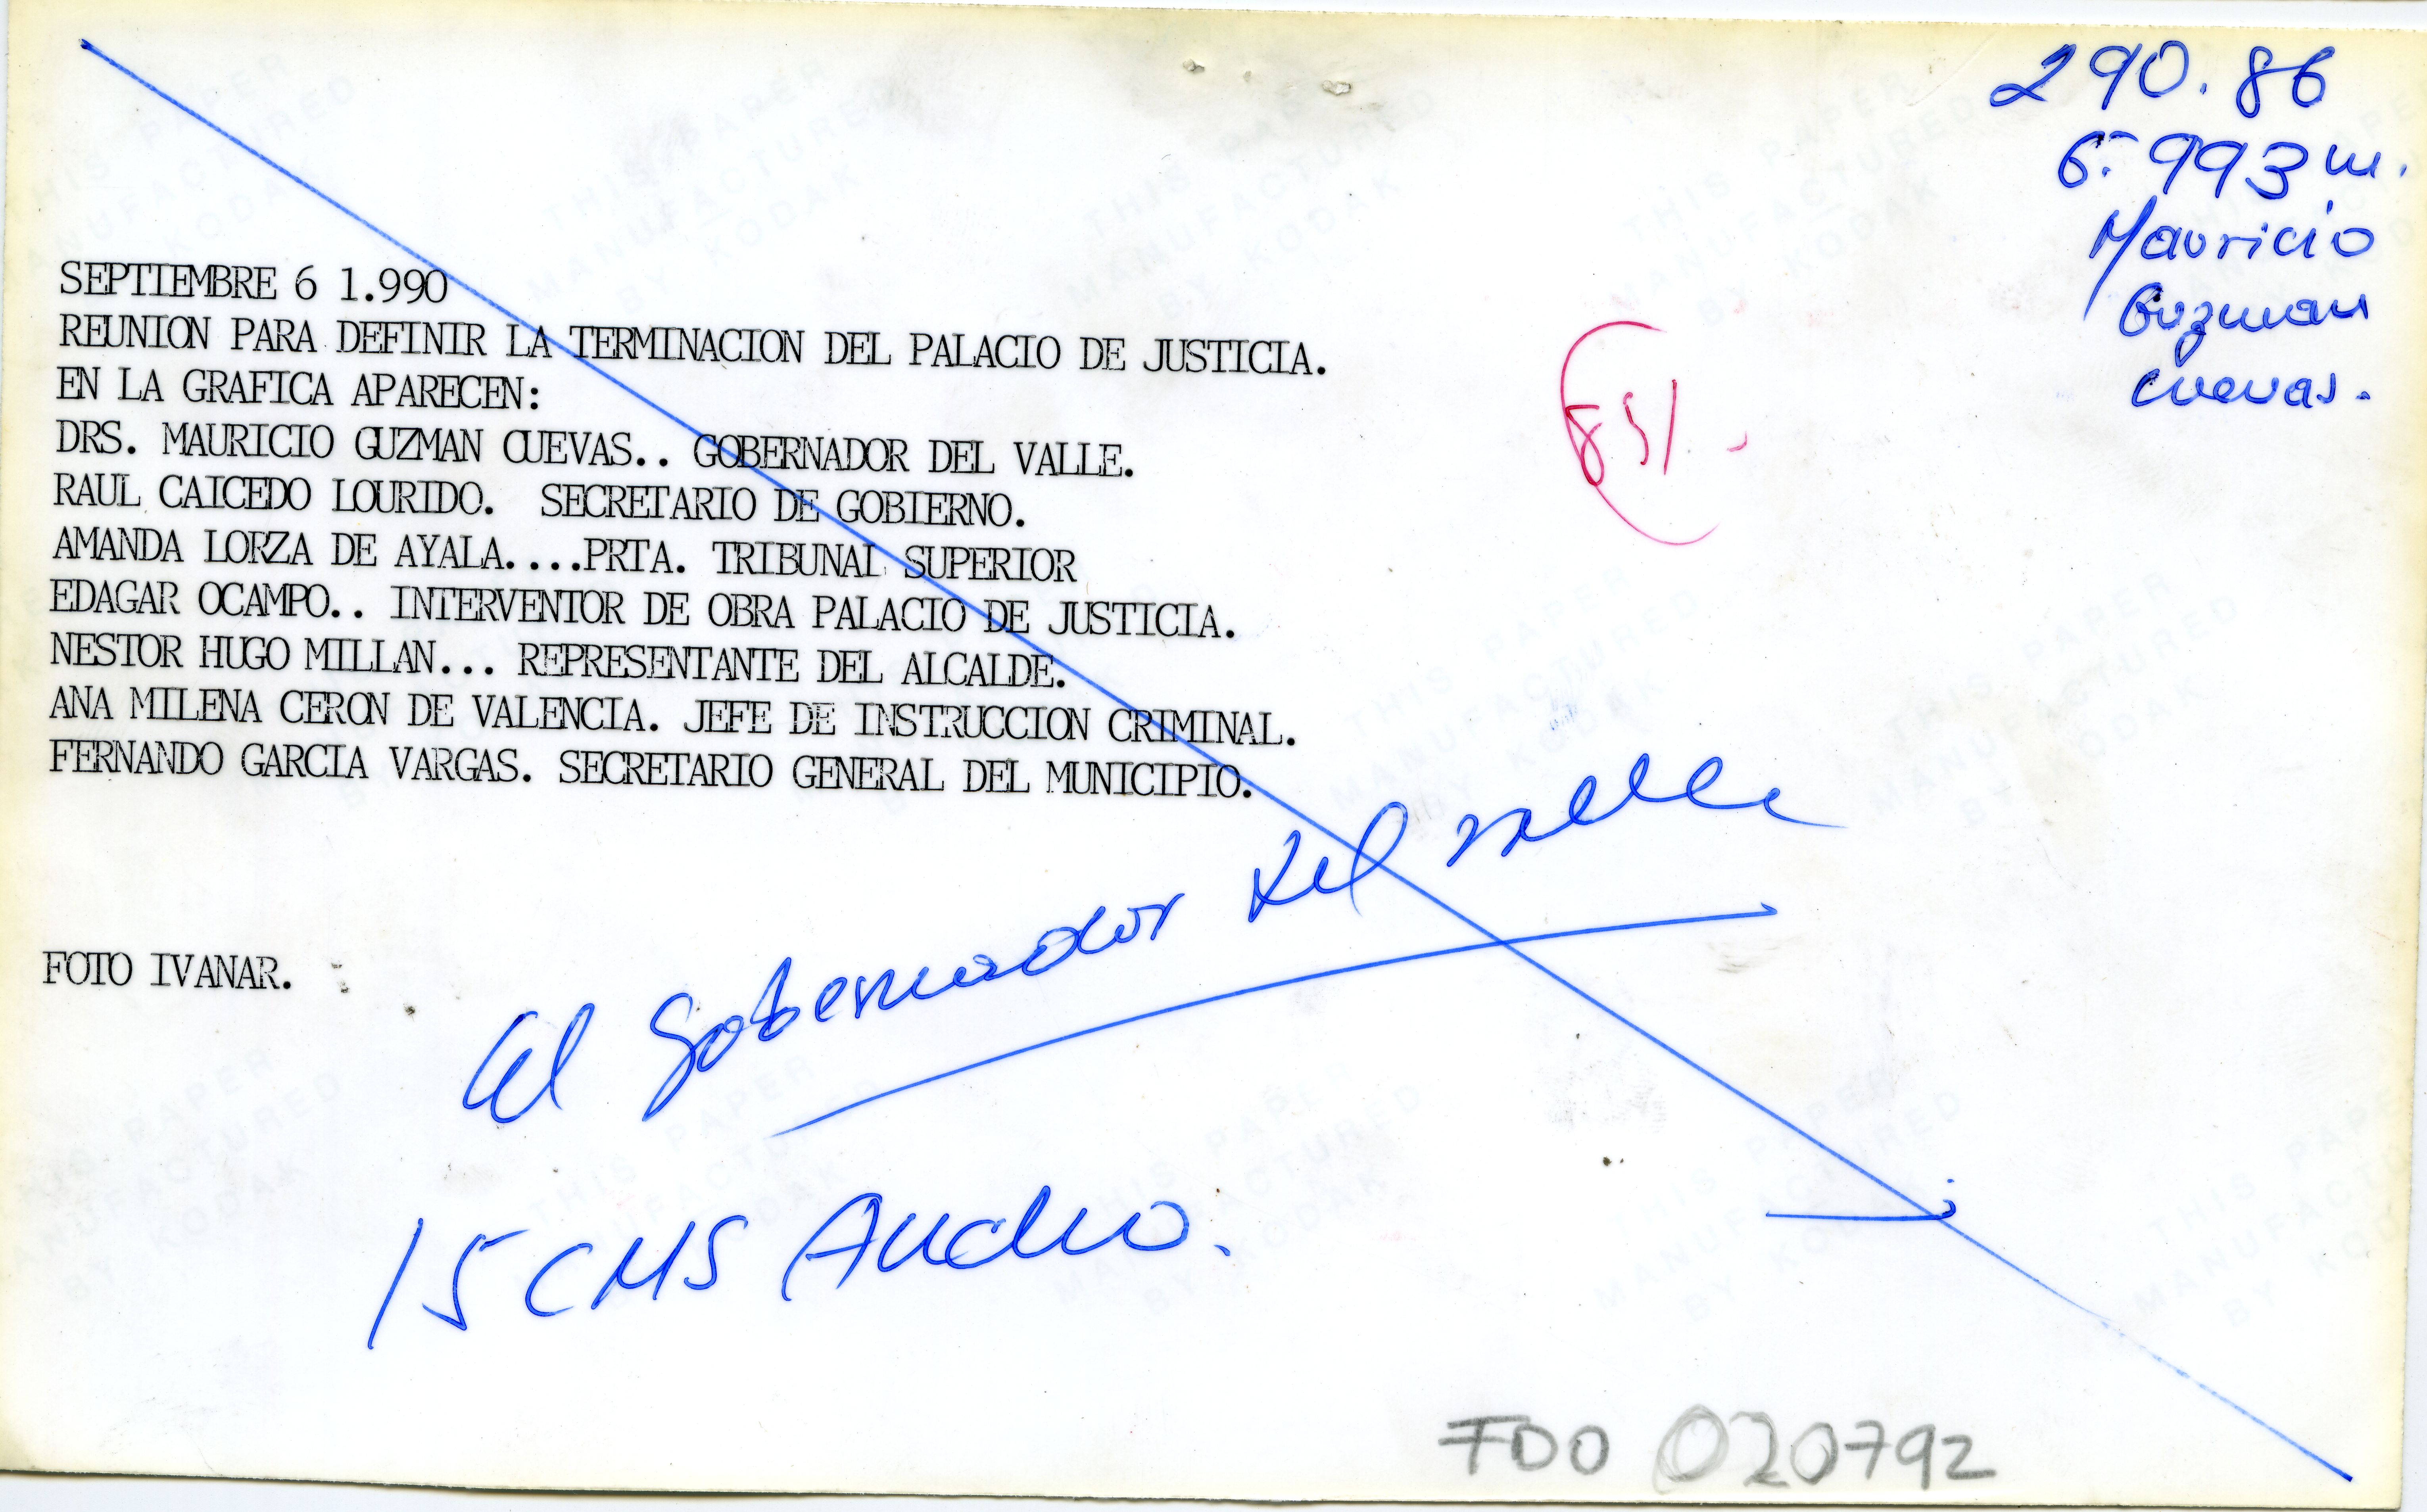 290.86
6.993 m.
Mauricio
Guzman
Cuevas.
SEPTIEMBRE 6 1.990
REUNION PARA DEFINIR LA TERMINACION DEL PALACIO DE JUSTICIA.
EN LA GRAFICA APARECEN:
DRS. MAURICIO GUZMAN CUEVAS.. GOBERNADOR DEL VALLE.
RAUL CAICEDO LOURIDO. SECRETARIO DE GOBIERNO.
AMANDA LORZA DE AYALA....PRTA. TRIBUNAL SUPERIOR
EDAGAR OCAMPO.. INTERVENTOR DE OBRA PALACIO DE JUSTICIA.
NESTOR HUGO MILLAN... REPRESENTANTE DEL ALCALDE.
ANA MILENA CERON DE VALENCIA. JEFE DE INSTRUCCION CRIMINAL.
FERNANDO GARCIA VARGAS. SECRETARIO GENERAL DEL MUNICIPIO.
851.
FOTO IVANAR.
El gobernador del valle
15 CMS Ancho.
FDO 020792
THIS PAPER
MANUFACTURED
BY KODAK